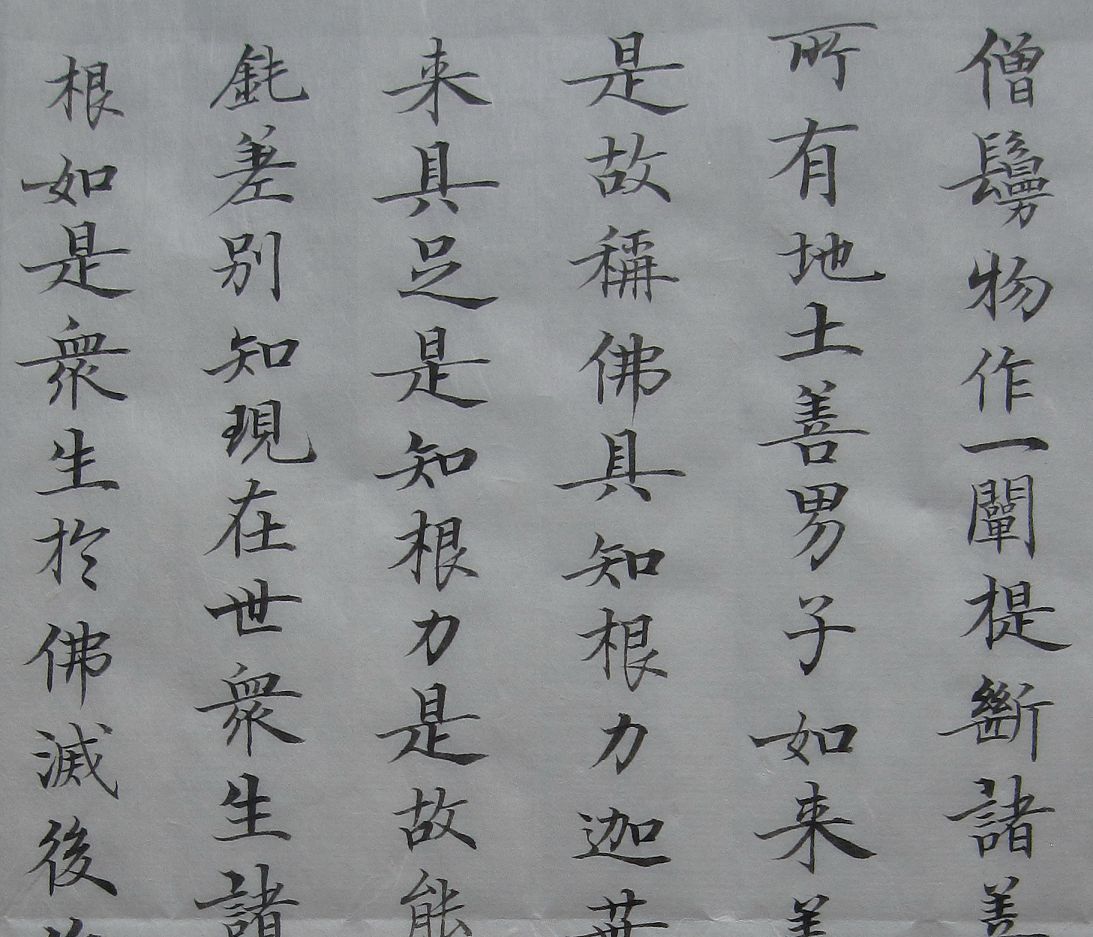 僧鬘物作一闡提斷諸善
所有地土善男子如来善
是故稱佛具知根力迦葉
来具足是知根力是故能
鈍差别知現在世衆生諸
根如是衆生於佛滅後